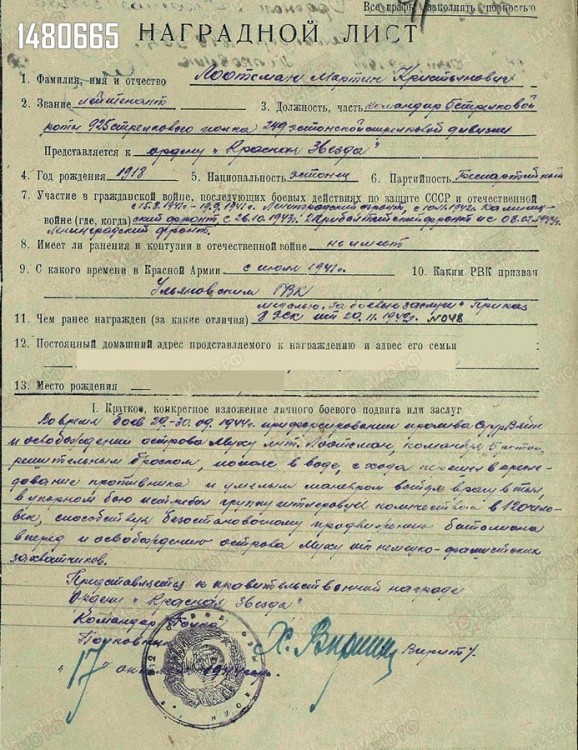 Все графы заполнять полностью
1480665
НАГРАДНОЙ ЛИСТ
1. Фамилия, имя и отчество Лоотсман Мартин Кристьянович
2. Звание лейтенант 3. Должность, часть командир 5 стрелковой
роты 925 стрелкового полка 249 эстонской стрелковой дивизии
Представляется к ордену „Красная Звезда"
4. Год рождения 1918 5. Национальность эстонец 6. Партийность беспартийный
7. Участие в гражданской войне, последующих боевых действиях по защите СССР и отечественной
войне (где, когда) ский фронт, с 26.10.1943г. 2 Прибалтийский фронт и с 08.02.1944г.
Ленинградский фронт.
8. Имеет ли ранения и контузии в отечественной войне не имеет
9. С какого времени в Красной Армии с июля 1941г. 10. Каким РВК призван
Ульяновским РВК
медалью „за боевые заслуги" Приказ
11. Чем ранее награжден (за какие отличия) 8 ЭСК от 20.11.1942г. №048
12. Постоянный домашний адрес представляемого к награждению и адрес его семьи
13. Место рождения
I. Краткое, конкретное изложение личного боевого подвига или заслуг
Во время боев 29.-30.09.1944г. при форсировании пролива Суур-Вяйн
и освобождении острова Муху лтн. Лоотсман, командуя 5 ротой,
решительным броском, по пояс в воде, с хода перешел в преследование противника и умелым маневром войдя врагу в тыл,
в упорном бою истребил группу гитлеровцев количеством в 120 человек, способствуя безостановочному продвижению батальона
вперед и освобождению острова Муху от немецко-фашистских
захватчиков.
Представляется к правительственной награде
Ордену „Красная Звезда"
Командир Полка
Полковник Вирит
„17" октября 1944г.